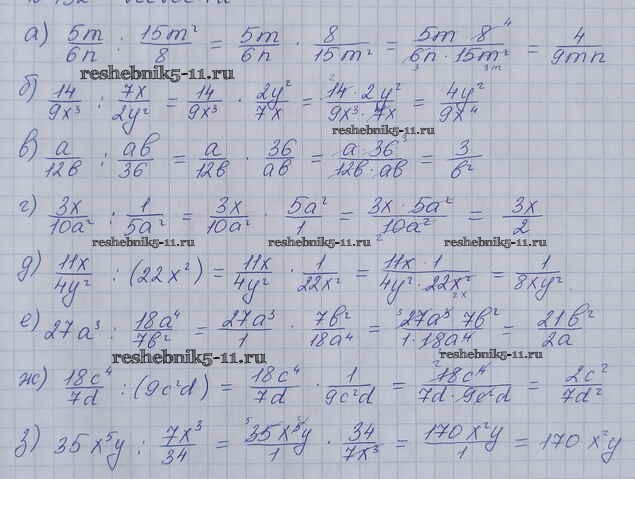 а) 5m/6n : 15m²/8 = 5m/6n · 8/15m² = 5m 8 4/6n · 15m² 3 3m = 4/9mn
reshebnik5-11.ru
б) 14/9x³ : 7x/2y² = 14/9x³ · 2y²/7x = 2 14 · 2y²/9x³ · 7x = 4y²/9x⁴
reshebnik5-11.ru
в) a/12b : ab/36 = a/12b · 36/ab = a · 36 3/12b · ab = 3/b²
г) 3x/10a² : 1/5a² = 3x/10a² · 5a²/1 = 3x · 5a²/2 10a² = 3x/2
reshebnik5-11.ru reshebnik5-11.ru reshebnik5-11.ru
д) 11x/4y² : (22x²) = 11x/4y² · 1/22x² = 11x · 1/4y² · 22x² 2x = 1/8xy²
е) 27a³ : 18a⁴/7b² = 27a³/1 · 7b²/18a⁴ = 3 27a³ 7b²/1 · 18a⁴ = 21b²/2a
reshebnik5-11.ru reshebnik5-11.ru
ж) 18c⁴/7d : (9c²d) = 18c⁴/7d · 1/9c²d = 2 18c⁴/7d · 9c²d = 2c²/7d²
з) 35x⁵y : 7x³/34 = 5 35x⁵y 2/1 · 34/7x³ = 170x²y/1 = 170x²y